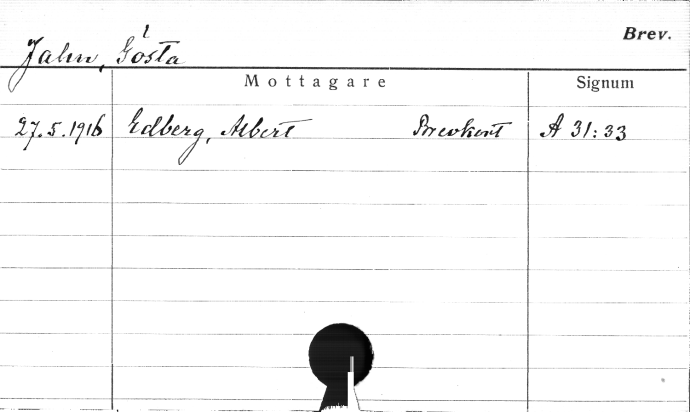 Brev.
Jahn, Gösta
Mottagare Signum
27.5.1916 Edberg, Albert Brevkort A 31:33